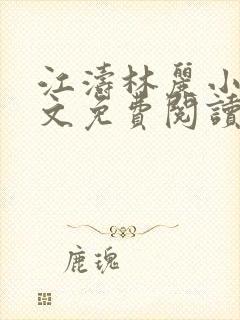 江濤林麗小
文免費閱讀
鹿瑰